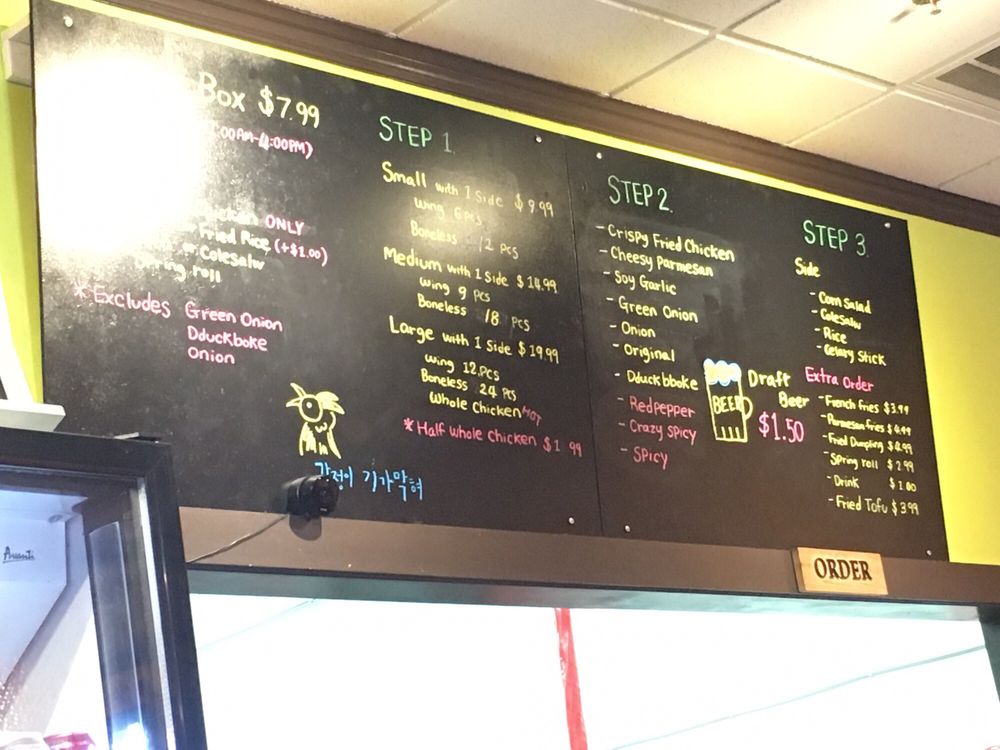 Box $7.99
:00AM-4:00PM)
ONLY
Fried Rice (+$1.00)
or Colesalw
Spring roll
*Excludes Green Onion
Dduckboke
Onion
STEP 1.
Small with 1 Side $9.99
Wing 6 PCS
Boneless 12 PCS
Medium with 1 Side $14.99
Wing 9 PCS
Boneless 18 PCS
Large with 1 Side $19.99
Wing 12.PCS
Boneless 24 PCS
Whole Chicken HOT
*Half Whole Chicken $1 99
강정이 기가막혀
STEP 2.
- Crispy Fried Chicken
- Cheesy Parmesan
- Soy Garlic
- Green Onion
- Onion
- Original
- Dduckbboke
- Redpepper
- Crazy Spicy
- SPICY
BEER
Draft
Beer
$1.50
STEP 3.
Side
- Corn Salad
- Colesalw
- Rice
- Celary Stick
Extra Order
- French fries $3.99
- Parmesan fries $4.99
- Fried Dumpling $4.99
- Spring roll $2.99
- Drink $1.00
- Fried Tofu $3.99
ORDER
Avanti